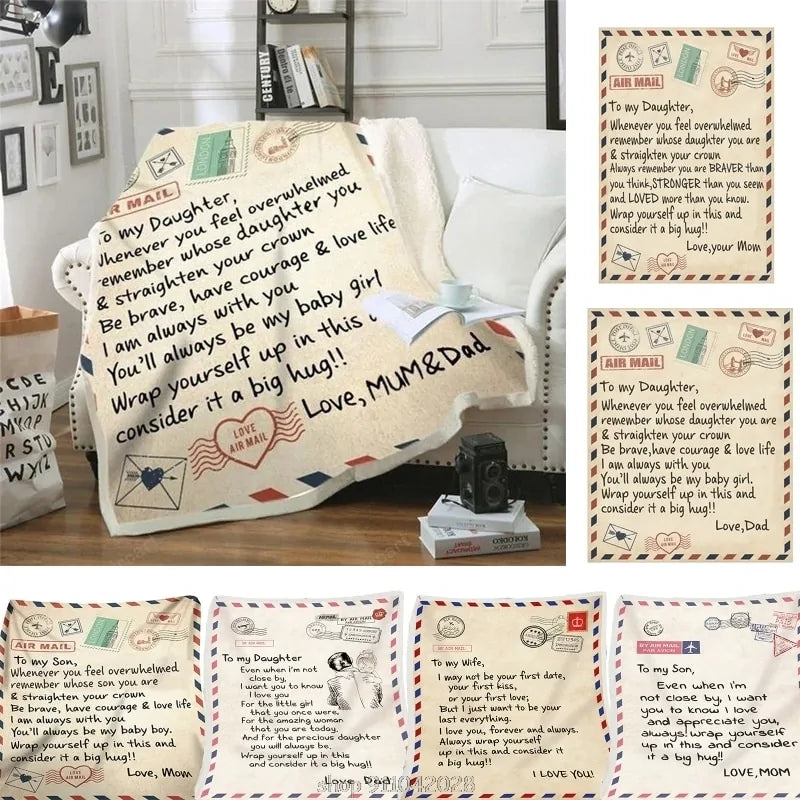 CENTURY
Dentro di te
LONDON
R MAIL
To my Daughter,
Whenever you feel overwhelmed
remember whose daughter you
& straighten your crown
Be brave, have courage & love life
I am always with you
You'll always be my baby girl
Wrap yourself up in this
consider it a big hug!!
Love, MUM&Dad
LOVE
AIR MAIL
KOLODKO
CDE
GHIJK
MNOP
RSTU
WXYZ
LONDON
LOVE MAIL
AIR MAIL
To my Daughter,
Whenever you feel overwhelmed
remember whose daughter you are
& straighten your crown
Always remember you are BRAVER than
you think,STRONGER than you seem
and LOVED more than you know.
Wrap yourself up in this and
consider it a big hug!!
Love,your Mom
LOVE
AIR MAIL
LONDON
LOVE MAIL
AIR MAIL
To my Daughter,
Whenever you feel overwhelmed
remember whose daughter you are
& straighten your crown
Be brave,have courage & love life
I am always with you
You'll always be my baby girl.
Wrap yourself up in this and
consider it a big hug!!
Love,Dad
LOVE
AIR MAIL
LONDON
AIR MAIL
To my Son,
Whenever you feel overwhelmed
remember whose son you are
& straighten your crown
Be brave, have courage & love life
I am always with you
You'll always be my baby boy.
Wrap yourself up in this and
consider it a big hug!!
Love, Mom
LOVE
AIR MAIL
AIRMAIL
BY AIR MAIL
To my Daughter
Even when i'm not
close by,
I want you to know
I love you
For the little girl
that you once were,
For the amazing woman
that you are today.
And for the precious daughter
you will always be.
Wrap yourself up in this
and consider it a big hug!!
Love, Dad
BY AIR MAIL
To my Wife,
I may not be your first date,
your first kiss,
or your first love;
But I just want to be your
last everything.
I love you, forever and always.
Always wrap yourself
up in this and consider it
a big hug!!
I LOVE YOU!
BY AIR MAIL
PAR AVION
To my Son,
Even when i'm
not close by, I want
you to know I love
and appreciate you,
always! wrap yourself
up in this and consider
it a big hug!!
LOVE, MOM
shop 911042028